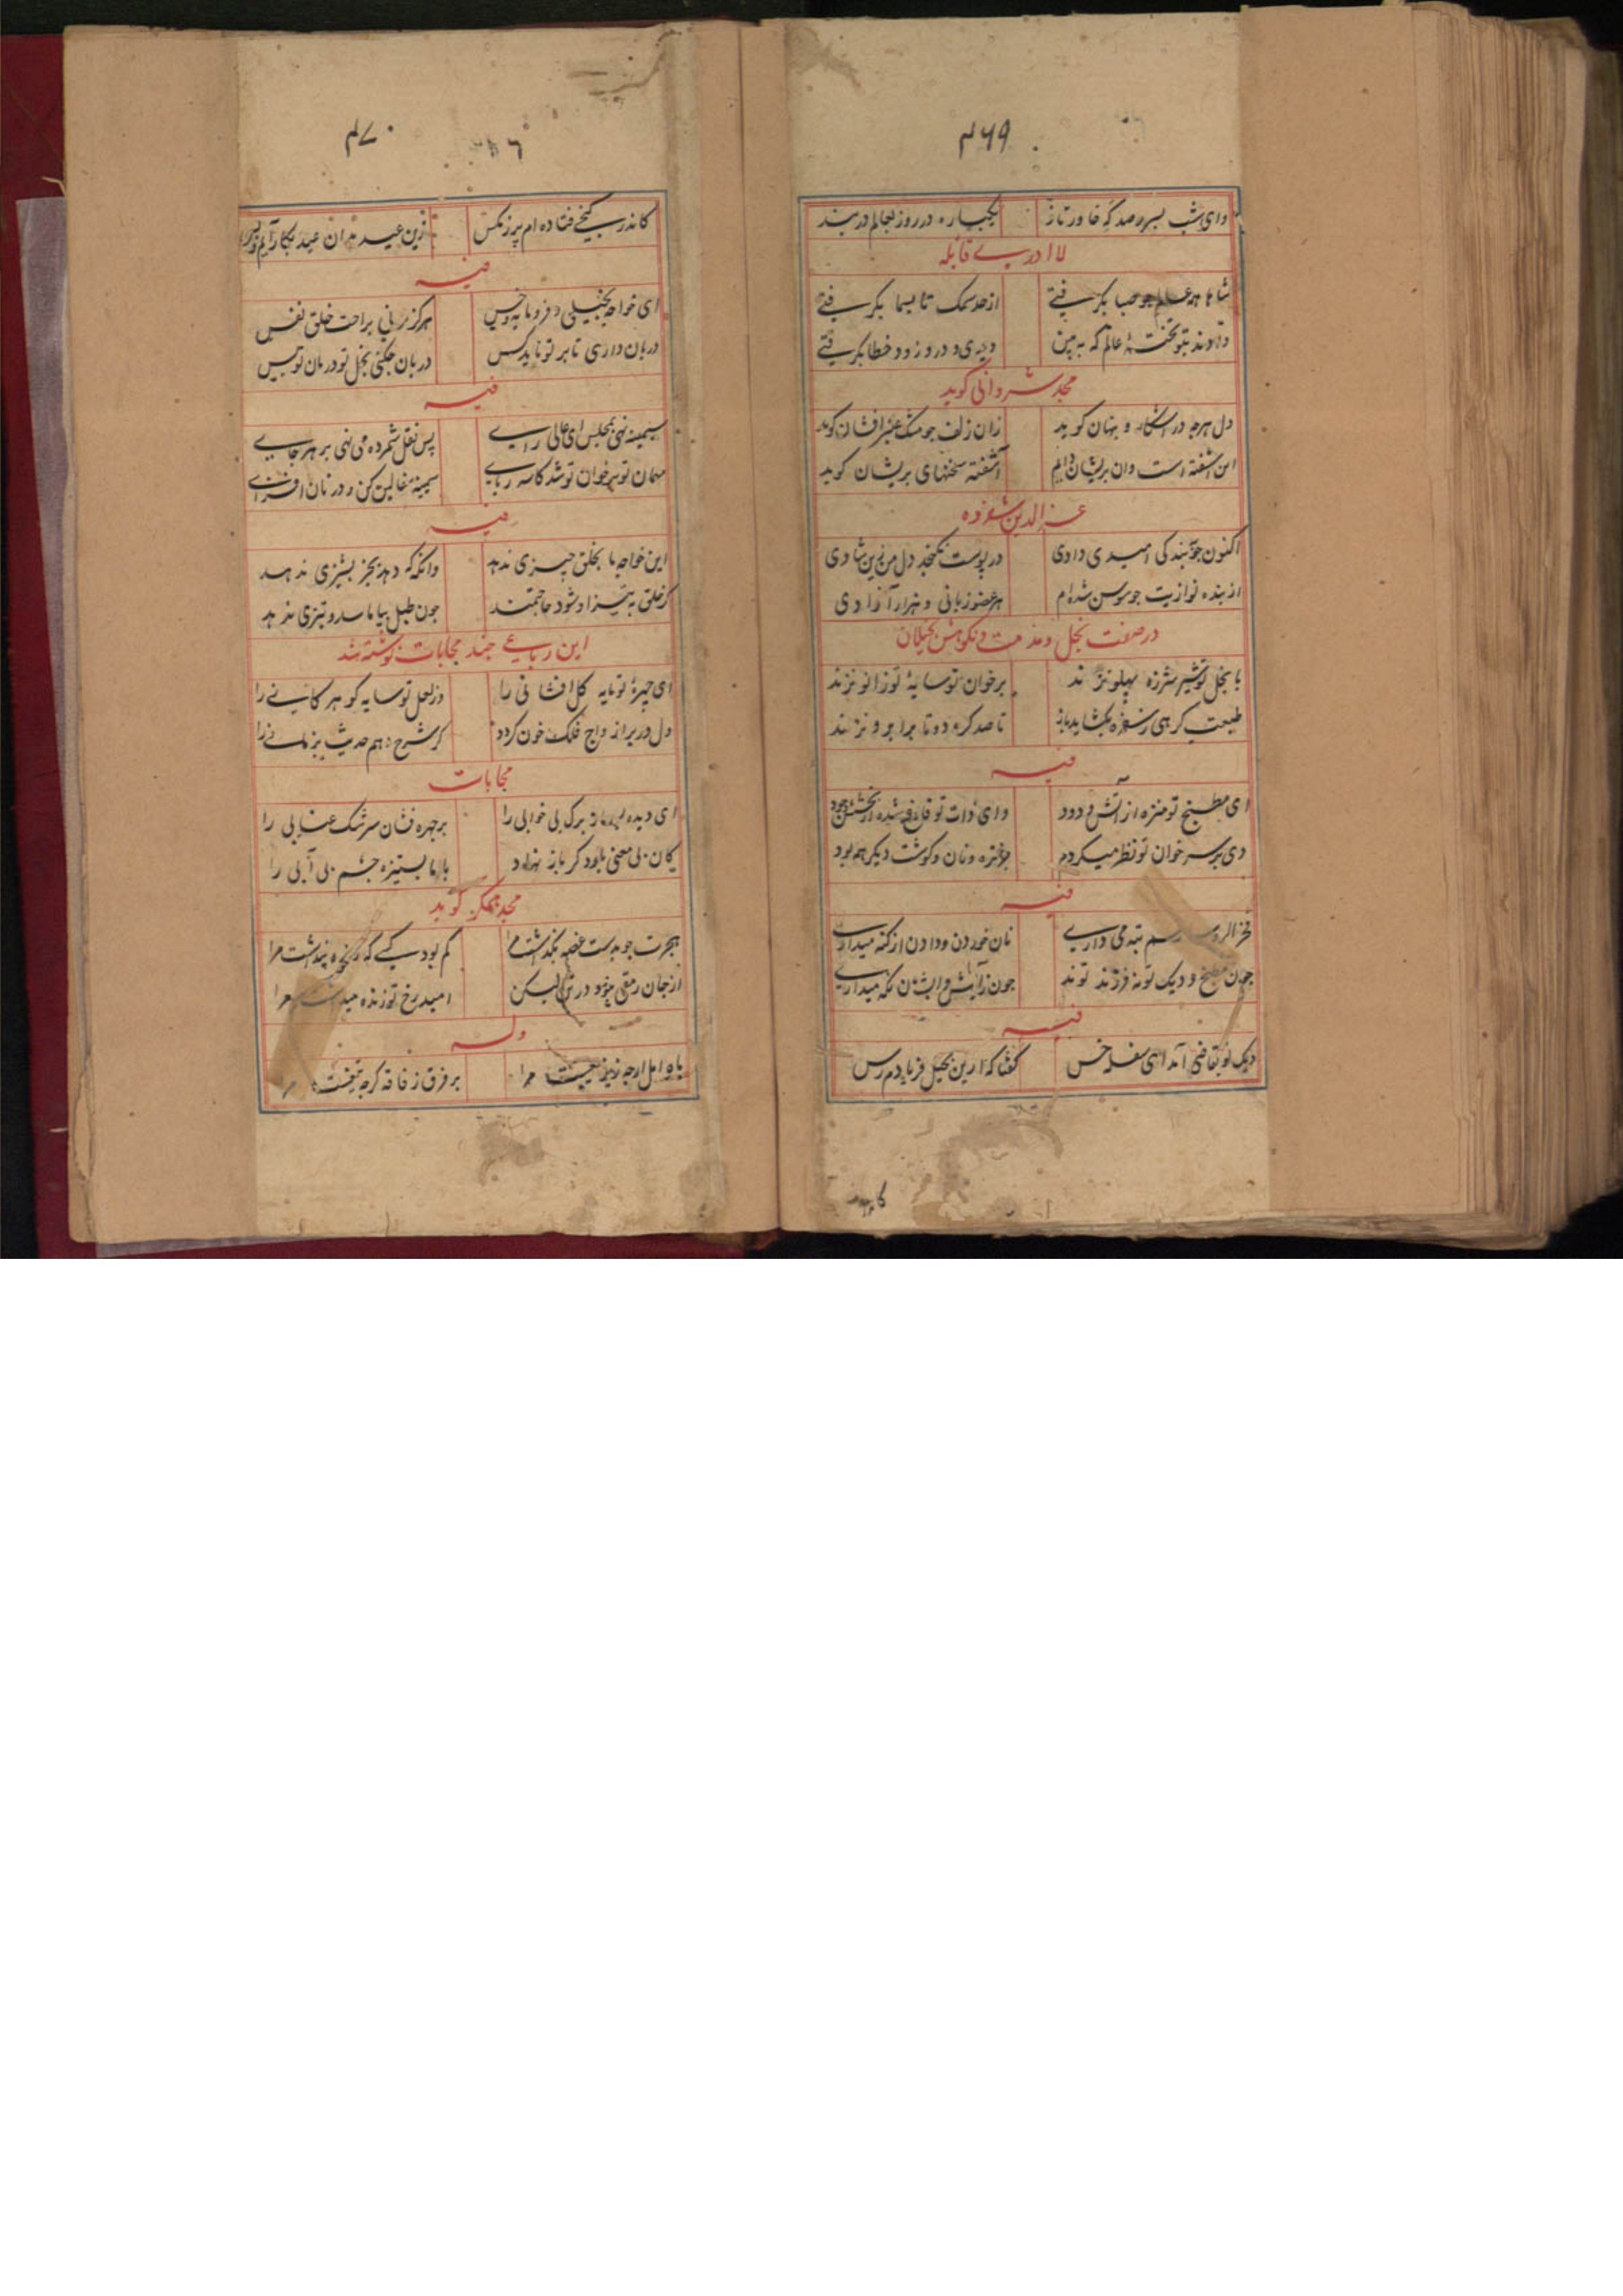 ۴۶۹
وای شب بسره صد که خاور تاز یکباره در روز بعالم در بند
لا ادری قائله
شاها همه عالم جو صبا بگرفتی از حد سمک تا بسما بگرفتی
دادند بتو تخته عالم که ببین دیدی و در و زود خطا بگرفتی
مجد شروانی کوید
دل هرجه در اشکار و پنهان کوید زان زلف جو مشک عنبر افشان کوید
این اشفته است وان پریشان دایم آشفته سخنهای پریشان کوید
عز الدین شفروه
اکنون جو ببندکی امیدی دادی در پوست نکنجد دل من زین شادی
از بنده نوازیت جو سوسن شده‌ام هر عضو زبانی و هزار آزادی
در صفت بخل و مذمت و نکوهش بخیلان
با بخل تو شیر شرزه پهلو نزند بر خوان تو سایهٔ تو زانو نزند
طبعت کرهی ز سفره نکشاید باز تا صد کره دو تا بر ابرو نزند
فیه
ای مطبخ تو منزه از آتش و دود وای ذات تو فارغ شده از بخشش و جود
دی بر سر خوان تو نظر میکردم جز تره و نان و کوشت دیکر همه بود
فیه
فخر الرو رسم تبه می داری نان خوردن و دادن از کنه میداری
جون مطبخ و دیک تو نه فرزند تو ند جون ز آتش و ابشان نکه میداری
فیه
دیک تو بتقاضی آمد ای سفله خس کفتا که ازین بخیل فریادم رس
کاندر
۴۷۰
کاندر کنجی فتاده‌ام پر ز مکس زین عید بدان عید بکار آیم و بس
فیه
ای خواجه بخیلی و فرومایه و خس هرکز نزنی براحت خلق نفس
دربان داری تا بر تو ناید کس دربان جکنی بخل تو دربان تو بس
فیه
سیمینه نهی بمجلس ای عالی رای پس نقل شمرده می نهی بر هر جای
مهمان تو بر خوان تو شد کاسه ربای سیمینه سفالین کن و در نان افزای
فیه
این خواجه ما بخلق جیزی ندهد وانکه که دهد بجز پشیزی ندهد
کر خلق به تیز او شود حاجتمند جون طبل بیاماسد و تیزی ندهد
این رباعی جند مجابات نوشته شد
ای جهرهٔ تو مایه کل افشانی را وز لعل تو سایه کوهر کانی را
دل در بر ازواج فلک خون کردد کر شرح دهم حدیث پنهانی را
مجابات
ای دیده بساز برک بی خوابی را بر جهره فشان سرشک عنابی را
کان بی معنی باز دکر باز نهاد با ما بستیزه جشم بی آبی را
مجد همکر کوید
هجرت جو بدست غصه بکذاشت مرا کم بود کسی که زنده پنداشت مرا
از جان رمقی نبود در تن لیکن امید رخ تو زنده میداشت مرا
وله
با اهل ارجه نیز نیست مرا بر فرق ز فاقه کرجه تیغست مرا